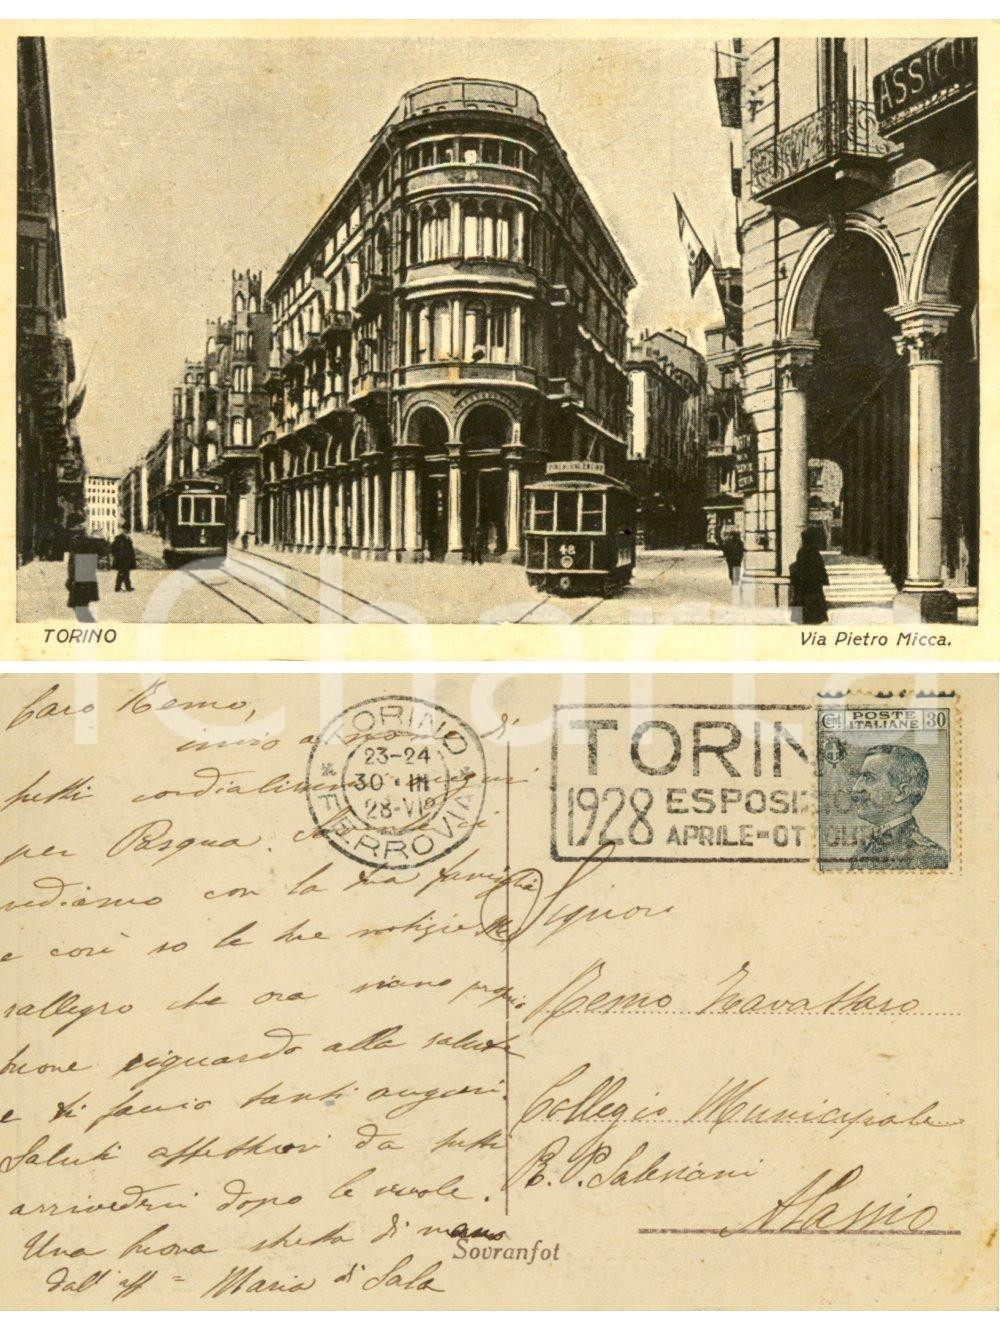 ASSICU
48
TORINO
Via Pietro Micca.
iCharta
Caro Remo,
invio a nome di
tutti cordialissimi auguri
per Pasqua.
vediamo con la tua famiglia
e così so le tue notizie. Mi
rallegro che ora siano proprio
buone riguardo alla salute
e ti faccio tanti auguri.
Saluti affettuosi da tutti
arrivederci dopo le scuole.
Una buona stretta di mano
dall'aff = Maria di Sala
TORINO
23-24
30·III
28-VI
* FERROVIA *
TORIN
1928 ESPOSIZIO
APRILE-OTTOBRE
POSTE ITALIANE
Cent 30
Signor
Remo Travattaro
Collegio Municipale
R. P. Salesiani
Alassio
Sovranfot